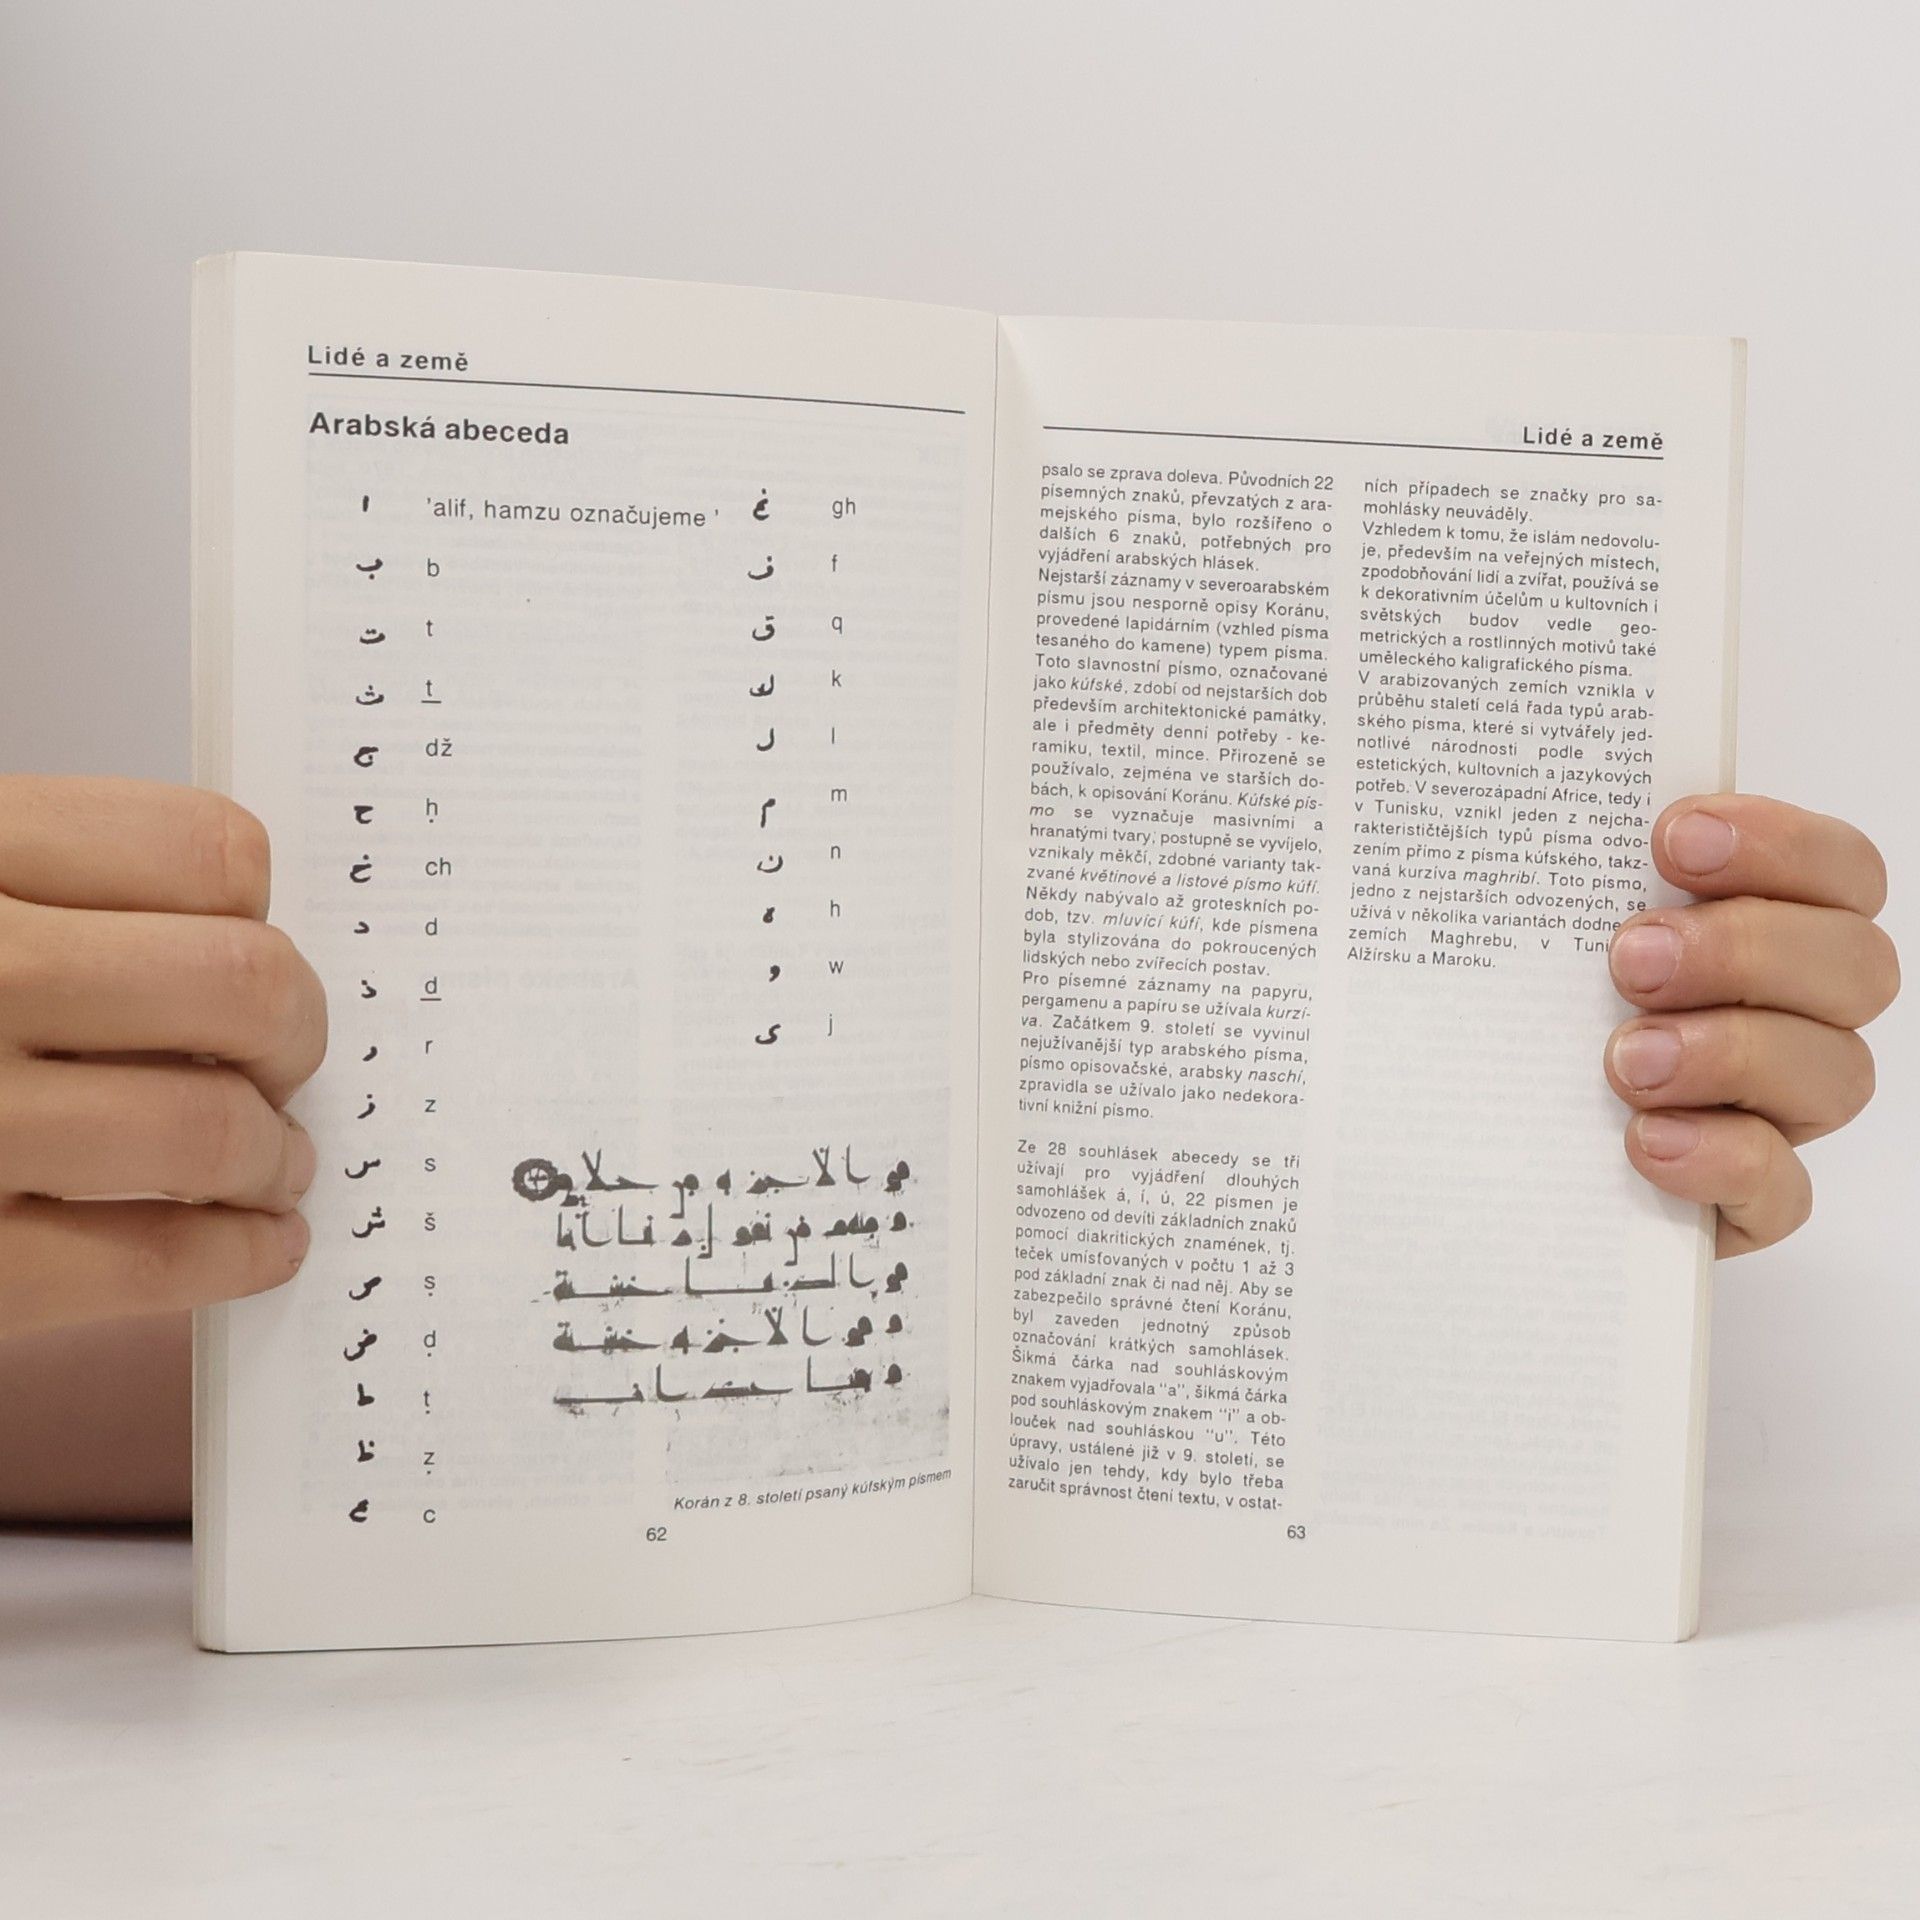 Lidé a země
Arabská abeceda
ا 'alif, hamzu označujeme '
ب b
ت t
ث ṯ
ج dž
ح ḥ
خ ch
د d
ذ ḏ
ر r
ز z
س s
ش š
ص ṣ
ض ḍ
ط ṭ
ظ ẓ
ع c
غ gh
ف f
ق q
ك k
ل l
م m
ن n
ه h
و w
ى j
Korán z 8. století psaný kúfským písmem
62
Lidé a země
psalo se zprava doleva. Původních 22
písemných znaků, převzatých z ara-
mejského písma, bylo rozšířeno o
dalších 6 znaků, potřebných pro
vyjádření arabských hlásek.
Nejstarší záznamy v severoarabském
písmu jsou nesporně opisy Koránu,
provedené lapidárním (vzhled písma
tesaného do kamene) typem písma.
Toto slavnostní písmo, označované
jako kúfské, zdobí od nejstarších dob
především architektonické památky,
ale i předměty denní potřeby - ke-
ramiku, textil, mince. Přirozeně se
používalo, zejména ve starších do-
bách, k opisování Koránu. Kúfské pís-
mo se vyznačuje masivními a
hranatými tvary; postupně se vyvíjelo,
vznikaly měkčí, zdobné varianty tak-
zvané květinové a listové písmo kúfí.
Někdy nabývalo až groteskních po-
dob, tzv. mluvící kúfí, kde písmena
byla stylizována do pokroucených
lidských nebo zvířecích postav.
Pro písemné záznamy na papyru,
pergamenu a papíru se užívala kurzí-
va. Začátkem 9. století se vyvinul
nejužívanější typ arabského písma,
písmo opisovačské, arabsky naschí,
zpravidla se užívalo jako nedekora-
tivní knižní písmo.
Ze 28 souhlásek abecedy se tři
užívají pro vyjádření dlouhých
samohlášek á, í, ú, 22 písmen je
odvozeno od devíti základních znaků
pomocí diakritických znamének, tj.
teček umísťovaných v počtu 1 až 3
pod základní znak či nad něj. Aby se
zabezpečilo správné čtení Koránu,
byl zaveden jednotný způsob
označování krátkých samohlásek.
Šikmá čárka nad souhláskovým
znakem vyjadřovala "a", šikmá čárka
pod souhláskovým znakem "i" a ob-
louček nad souhláskou "u". Této
úpravy, ustálené již v 9. století, se
užívalo jen tehdy, kdy bylo třeba
zaručit správnost čtení textu, v ostat-
ních případech se značky pro sa-
mohlásky neuváděly.
Vzhledem k tomu, že islám nedovolu-
je, především na veřejných místech,
zpodobňování lidí a zvířat, používá se
k dekorativním účelům u kultovních i
světských budov vedle geo-
metrických a rostlinných motivů také
uměleckého kaligrafického písma.
V arabizovaných zemích vznikla v
průběhu staletí celá řada typů arab-
ského písma, které si vytvářely jed-
notlivé národnosti podle svých
estetických, kultovních a jazykových
potřeb. V severozápadní Africe, tedy i
v Tunisku, vznikl jeden z nejcha-
rakterističtějších typů písma odvo-
zením přímo z písma kúfského, takz-
vaná kurzíva maghribí. Toto písmo,
jedno z nejstarších odvozených, se
užívá v několika variantách dodne
zemích Maghrebu, v Tuni
Alžírsku a Maroku.
63